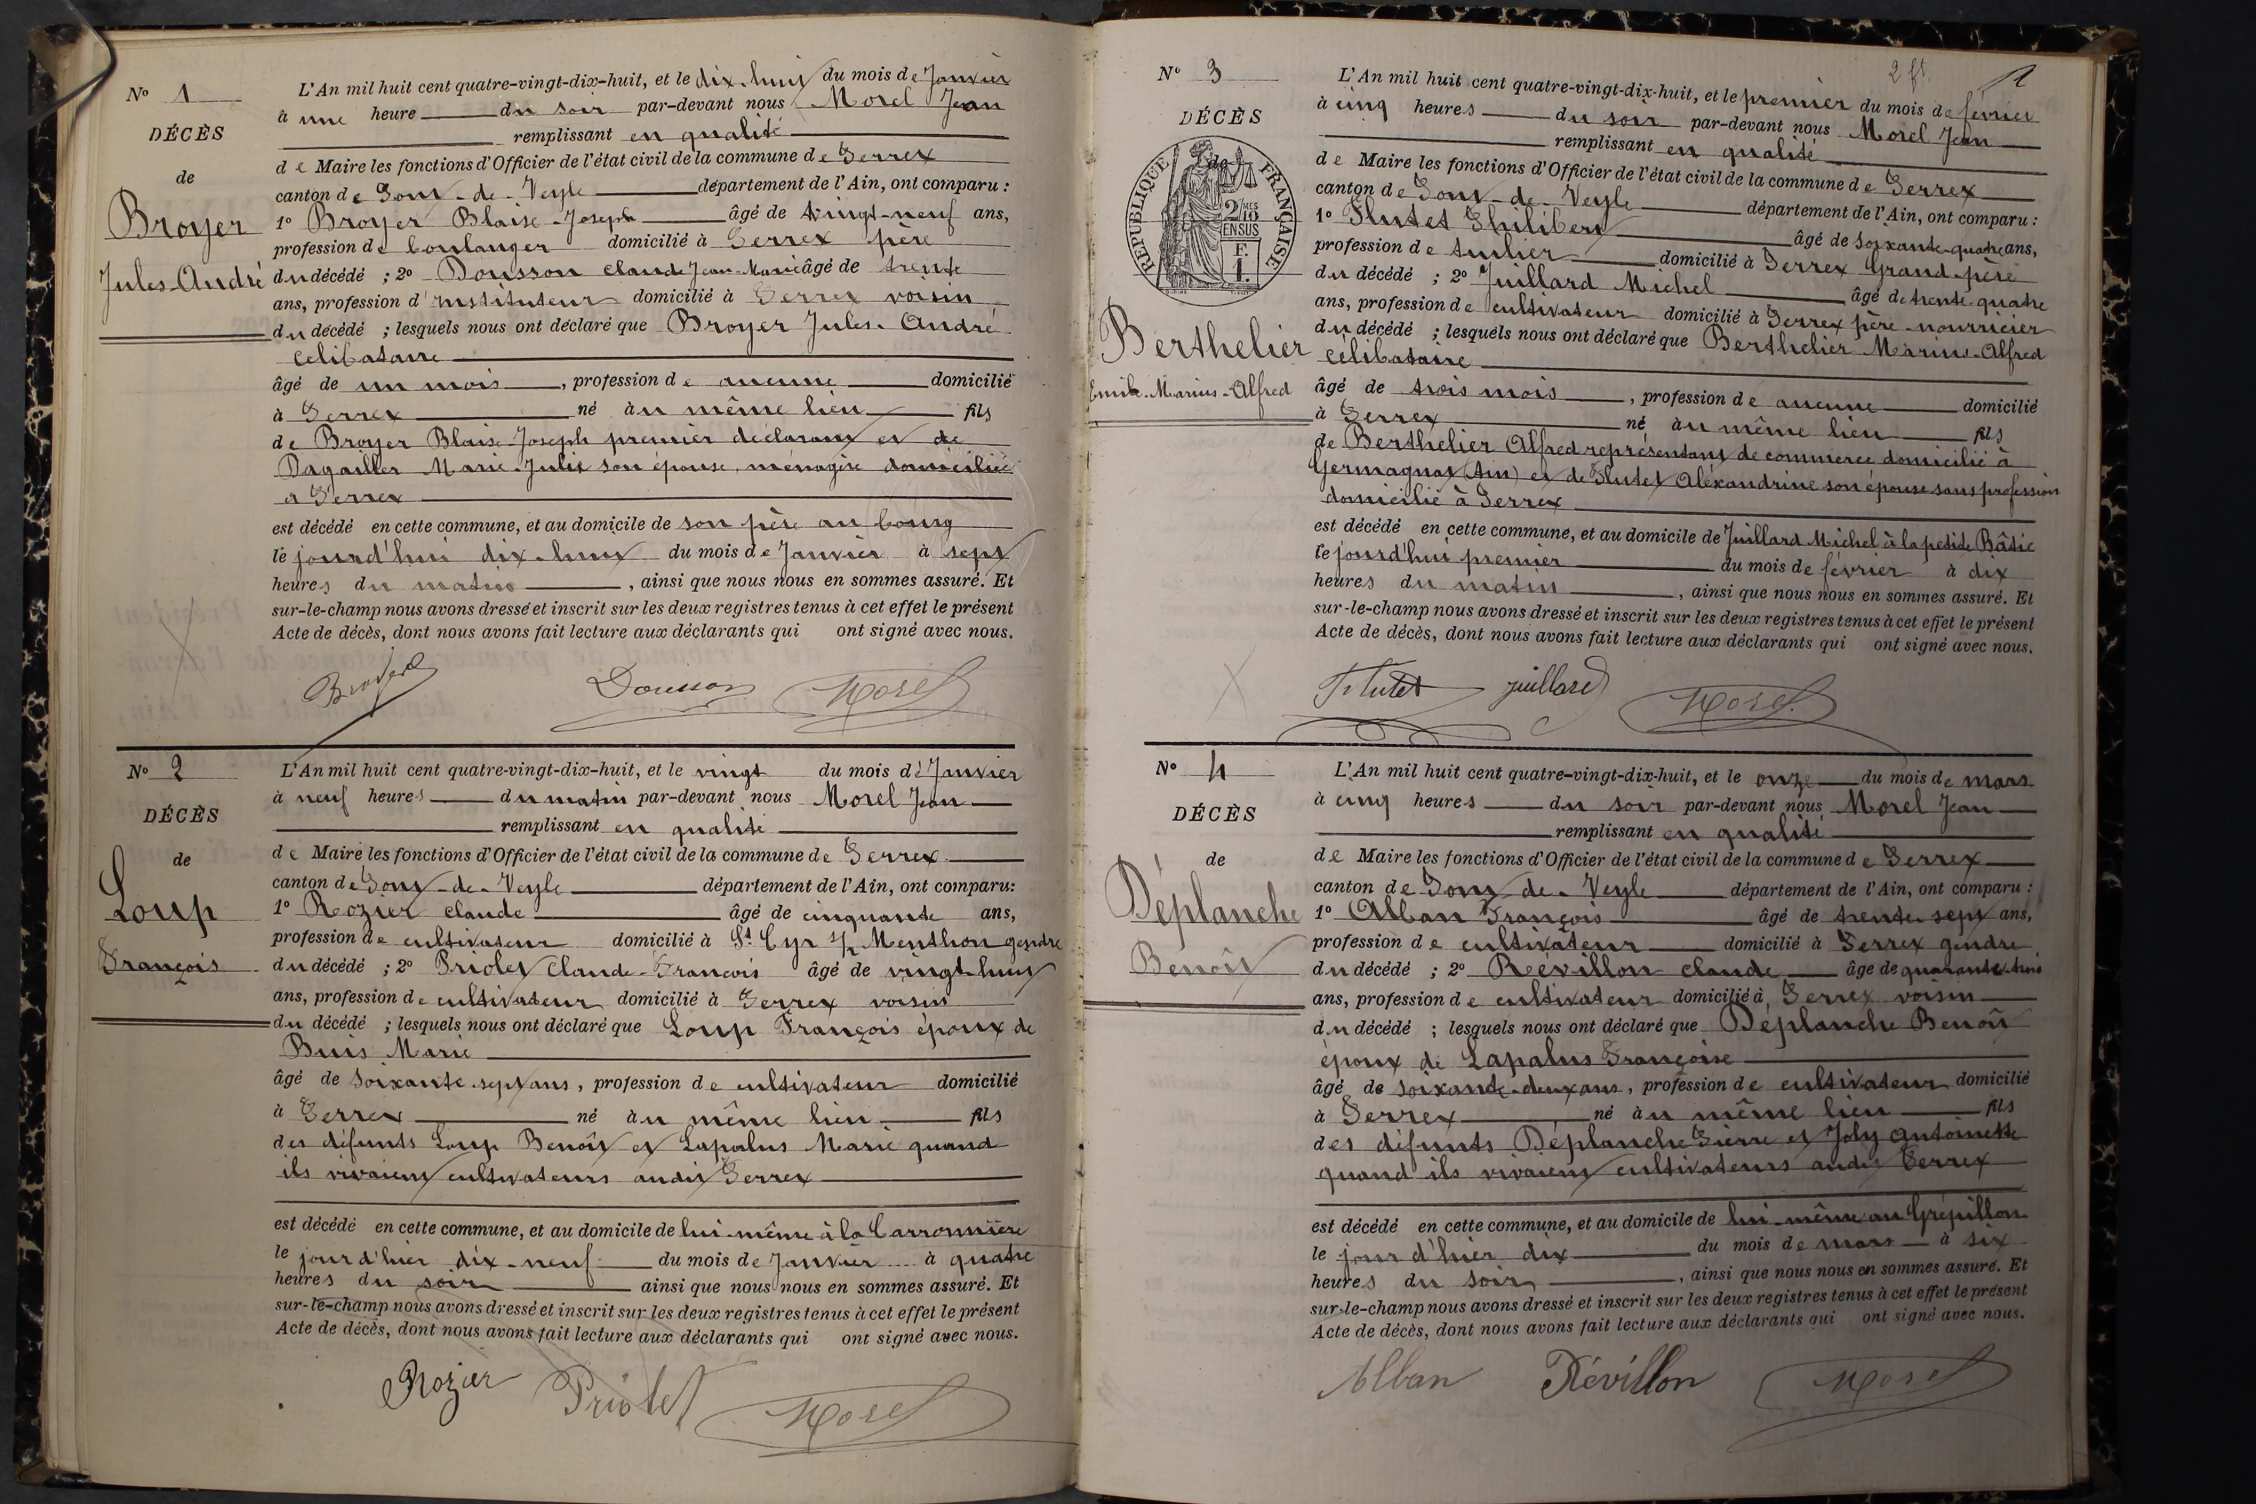 N° 1
DÉCÈS
de
Broyer
Jules-André
L'An mil huit cent quatre-vingt-dix-huit, et le dix-huit du mois de Janvier
à une heure du soir par-devant nous Morel Jean
remplissant en qualité
de Maire les fonctions d'Officier de l'état civil de la commune de Perrex
canton de Pont-de-Veyle département de l'Ain, ont comparu :
1° Broyer Blaise-Joseph âgé de vingt-neuf ans,
profession de boulanger domicilié à Perrex père
du décédé ; 2° Dousson Claude Jean-Marie âgé de trente
ans, profession d'instituteur domicilié à Perrex voisin
du décédé ; lesquels nous ont déclaré que Broyer Jules-André
célibataire
âgé de un mois, profession de aucune domicilié
à Perrex né au même lieu fils
de Broyer Blaise-Joseph premier déclarant et de
Dagailler Marie-Julie son épouse, ménagère domiciliée
à Perrex
est décédé en cette commune, et au domicile de son père au bourg
le jourd'hui dix-huit du mois de Janvier à sept
heures du matin, ainsi que nous nous en sommes assuré. Et
sur-le-champ nous avons dressé et inscrit sur les deux registres tenus à cet effet le présent
Acte de décès, dont nous avons fait lecture aux déclarants qui ont signé avec nous.
Broyer Dousson Morel
N° 2
DÉCÈS
de
Loup
François
L'An mil huit cent quatre-vingt-dix-huit, et le vingt du mois de Janvier
à neuf heures du matin par-devant nous Morel Jean
remplissant en qualité
de Maire les fonctions d'Officier de l'état civil de la commune de Perrex
canton de Pont-de-Veyle département de l'Ain, ont comparu :
1° Rozier Claude âgé de cinquante ans,
profession de cultivateur domicilié à St Cyr s/ Menthon gendre
du décédé ; 2° Priolet Claude-François âgé de vingt-huit
ans, profession de cultivateur domicilié à Perrex voisin
du décédé ; lesquels nous ont déclaré que Loup François époux de
Buis Marie
âgé de soixante-sept ans, profession de cultivateur domicilié
à Perrex né au même lieu fils
des défunts Loup Benoît et Lapalus Marie quand
ils vivaient cultivateurs audit Perrex
est décédé en cette commune, et au domicile de lui-même à la Carronnière
le jour d'hier dix-neuf du mois de Janvier à quatre
heures du soir ainsi que nous nous en sommes assuré. Et
sur-le-champ nous avons dressé et inscrit sur les deux registres tenus à cet effet le présent
Acte de décès, dont nous avons fait lecture aux déclarants qui ont signé avec nous.
Rozier Priolet Morel
2 ft. 1
N° 3
DÉCÈS
de
RÉPUBLIQUE FRANÇAISE
2/10 MES
EN SUS
F.
1.
Berthelier
Emile-Marius-Alfred
L'An mil huit cent quatre-vingt-dix-huit, et le premier du mois de février
à cinq heures du soir par-devant nous Morel Jean
remplissant en qualité
de Maire les fonctions d'Officier de l'état civil de la commune de Perrex
canton de Pont-de-Veyle département de l'Ain, ont comparu :
1° Flutet Philibert âgé de soixante-quatre ans,
profession de tuilier domicilié à Perrex Grand-père
du décédé ; 2° Juillard Michel âgé de trente-quatre
ans, profession de cultivateur domicilié à Perrex père-nourricier
du décédé ; lesquels nous ont déclaré que Berthelier Marius-Alfred
célibataire
âgé de trois mois, profession de aucune domicilié
à Perrex né au même lieu fils
de Berthelier Alfred représentant de commerce domicilié à
Germagnat (Ain) et de Flutet Aléxandrine son épouse sans profession
domicilié à Perrex
est décédé en cette commune, et au domicile de Juillard Michel à la petite Bâtie
le jourd'hui premier du mois de février à dix
heures du matin, ainsi que nous nous en sommes assuré. Et
sur-le-champ nous avons dressé et inscrit sur les deux registres tenus à cet effet le présent
Acte de décès, dont nous avons fait lecture aux déclarants qui ont signé avec nous.
Flutet juillard Morel
N° 4
DÉCÈS
de
Déplanche
Benoît
L'An mil huit cent quatre-vingt-dix-huit, et le onze du mois de mars
à cinq heures du soir par-devant nous Morel Jean
remplissant en qualité
de Maire les fonctions d'Officier de l'état civil de la commune de Perrex
canton de Pont-de-Veyle département de l'Ain, ont comparu :
1° Alban François âgé de trente-sept ans,
profession de cultivateur domicilié à Perrex gendre
du décédé ; 2° Révillon Claude âgé de quarante-trois
ans, profession de cultivateur domicilié à Perrex voisin
du décédé ; lesquels nous ont déclaré que Déplanche Benoît
époux de Lapalus Françoise
âgé de soixante-deux ans, profession de cultivateur domicilié
à Perrex né au même lieu fils
des défunts Déplanche Pierre et Joly Antoinette
quand ils vivaient cultivateurs audit Perrex
est décédé en cette commune, et au domicile de lui-même au Grépillon
le jour d'hier dix du mois de mars à six
heures du soir, ainsi que nous nous en sommes assuré. Et
sur-le-champ nous avons dressé et inscrit sur les deux registres tenus à cet effet le présent
Acte de décès, dont nous avons fait lecture aux déclarants qui ont signé avec nous.
Alban Révillon Morel